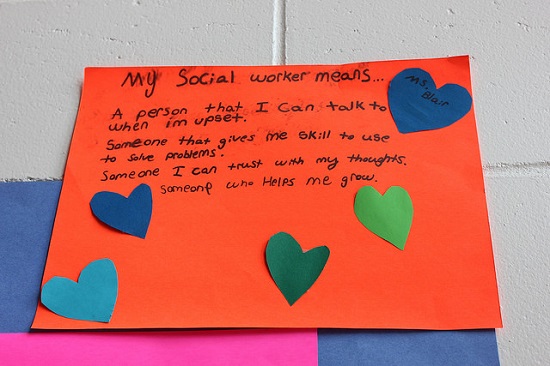 My Social worker means...
Ms.
Blair
A person that I can talk to
when im upset.
Someone that gives me skill to use
to solve problems.
Someone I can trust with my thoughts.
Someone who Helps me grow.